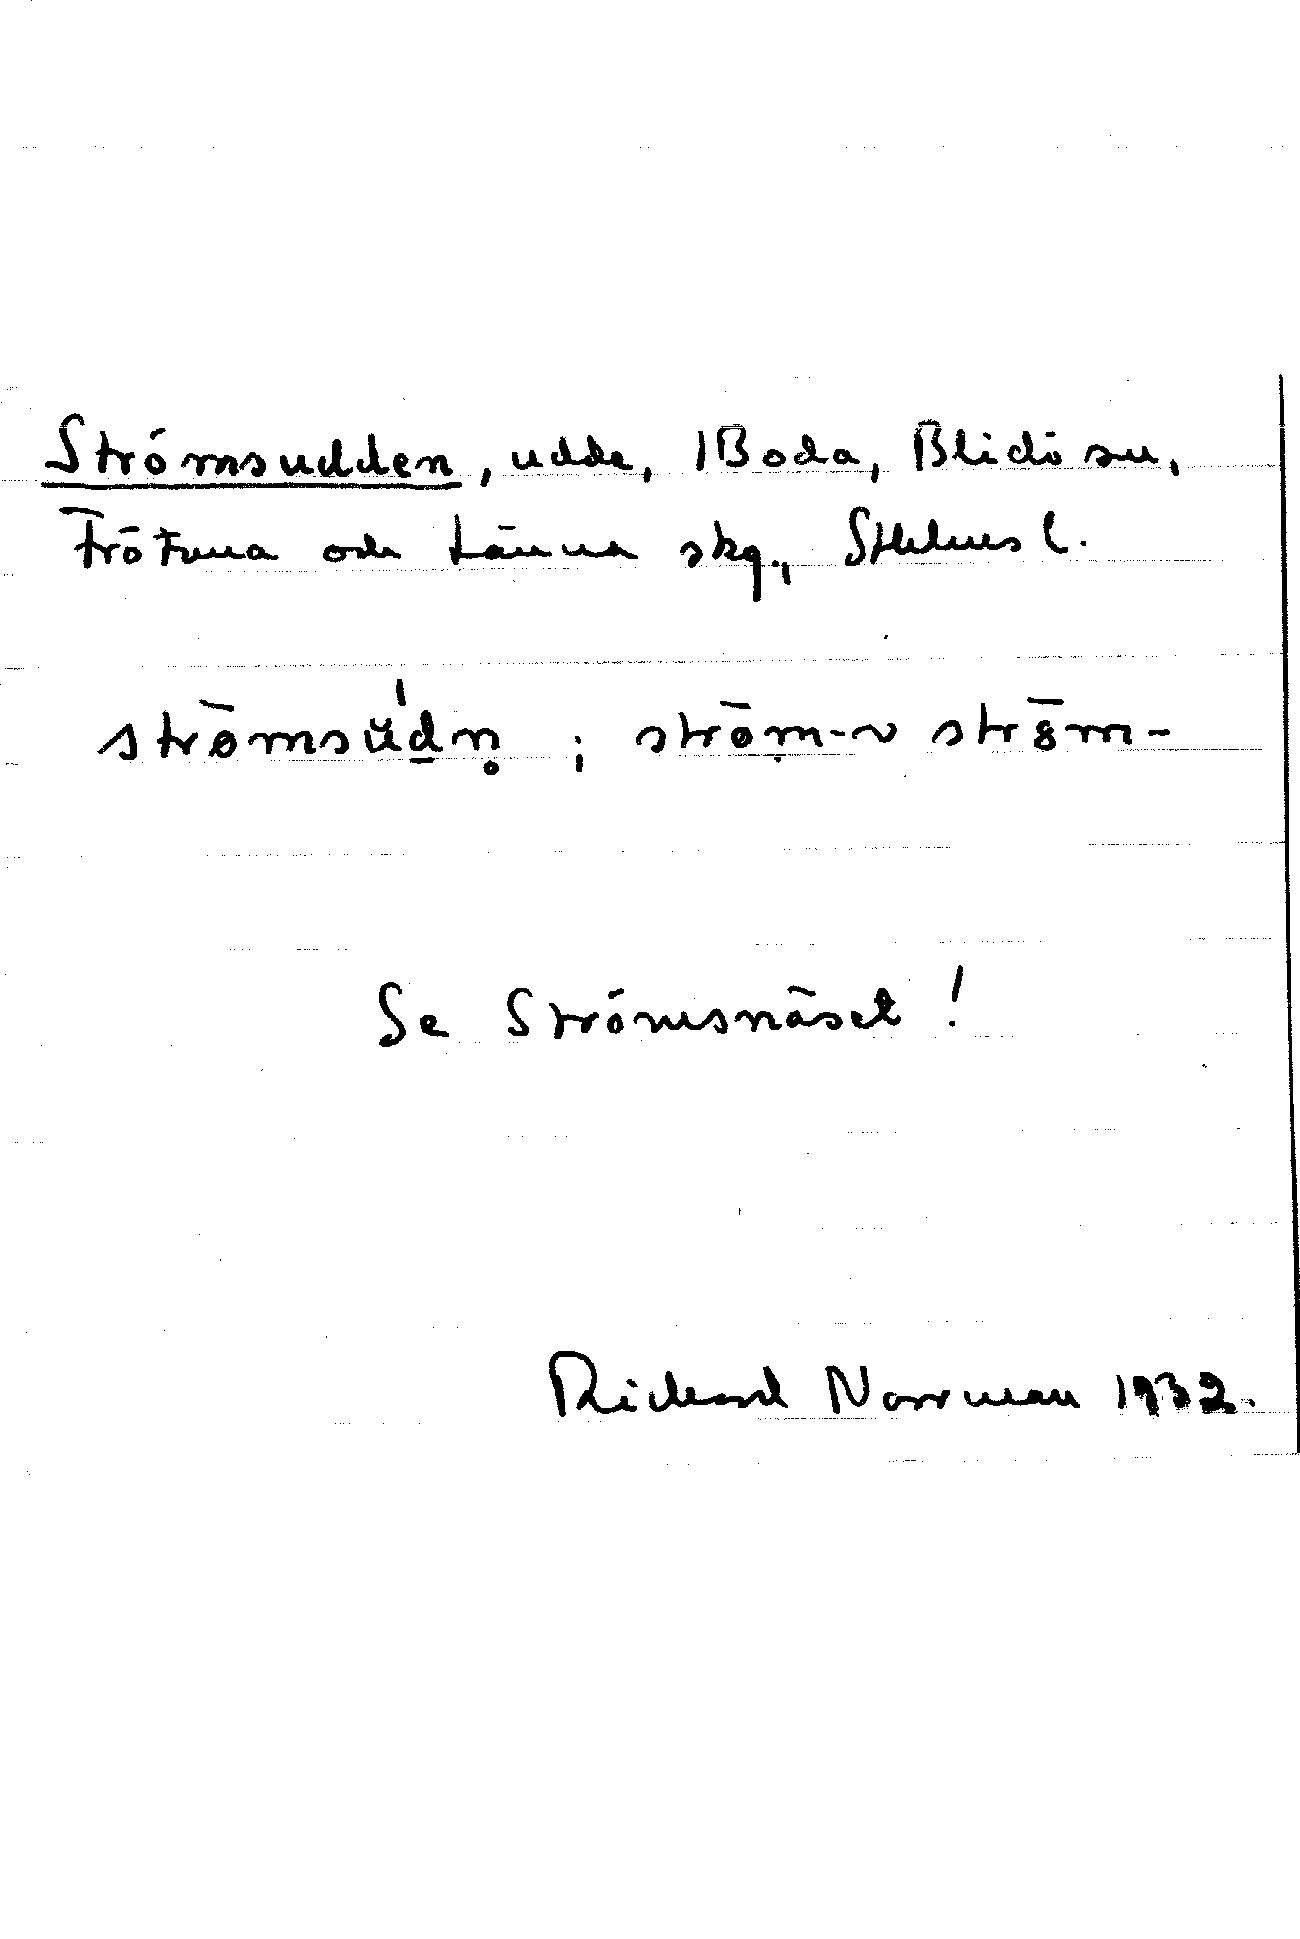 Strömsudden, udde, 1Boda, Blidö sn,
Frötuna och Länna skg., Sthlms l.
strø̄msŭ̍d̲n̥ ; strø̄ṃ-ᴎ strȣ̄m-
Se Strömsnäset !
Richard Norrman 1932.